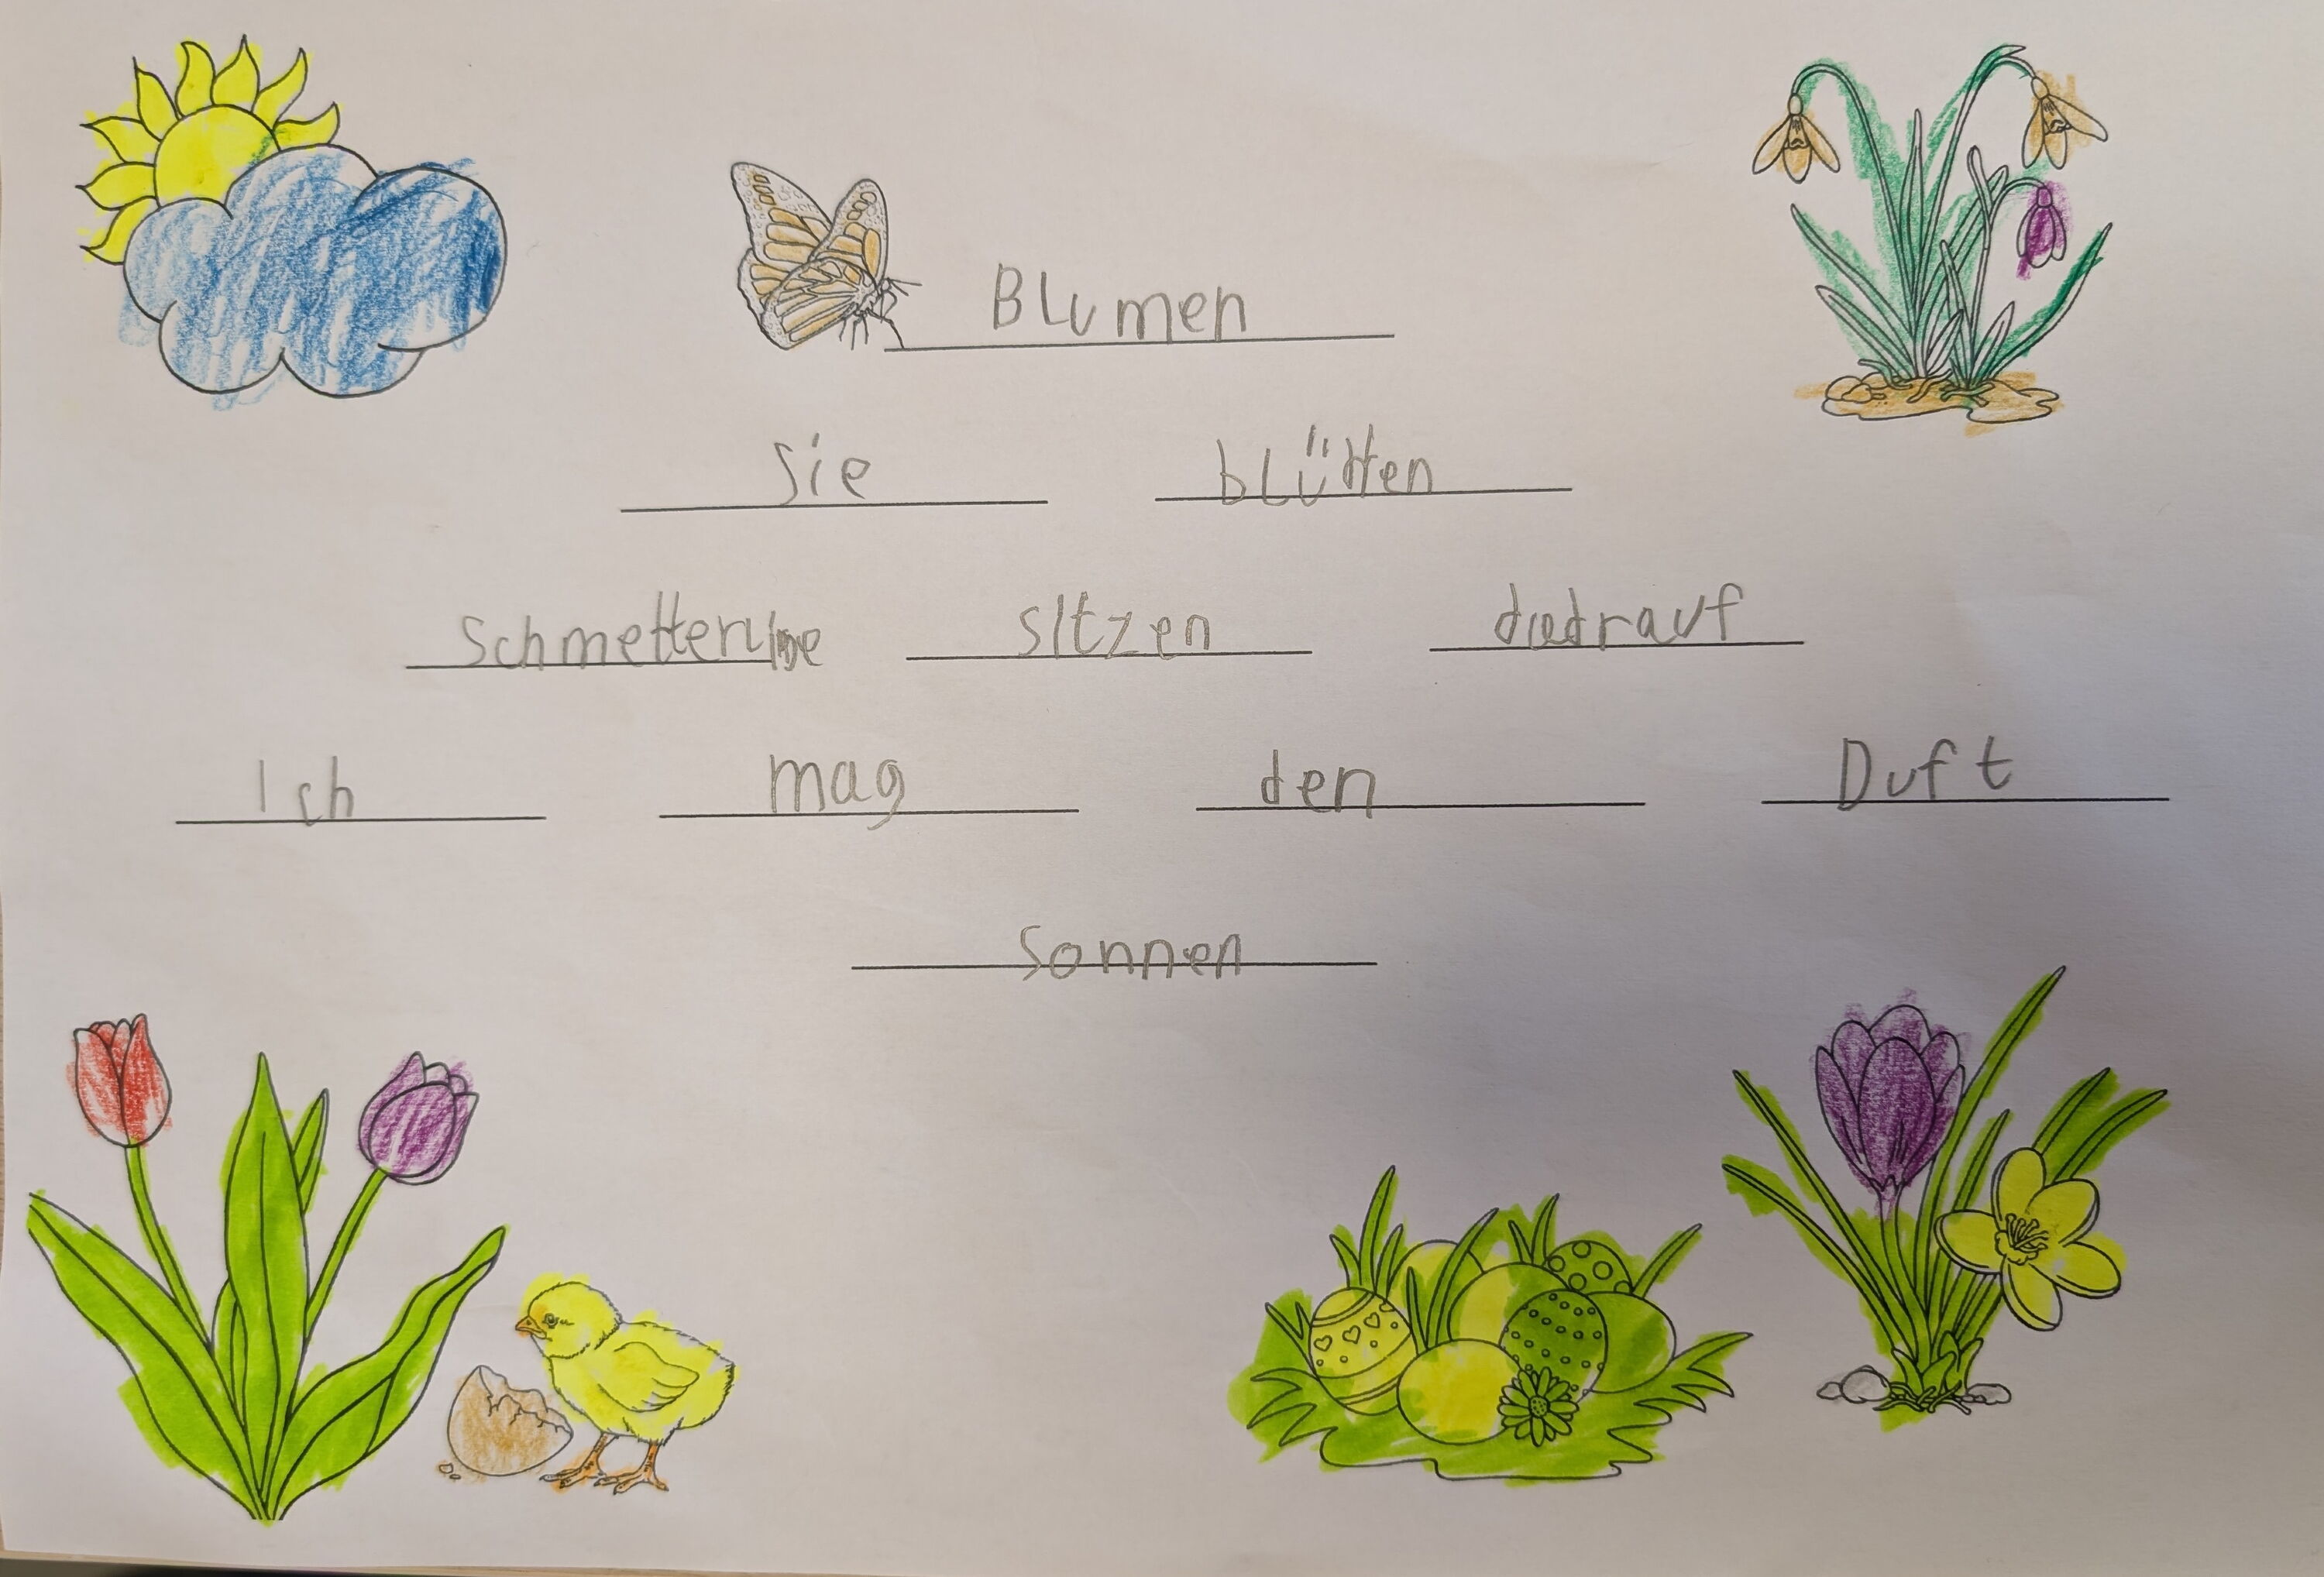 Blumen
sie blütten
Schmetterline sitzen
Ich mag den Duft
Sonnen